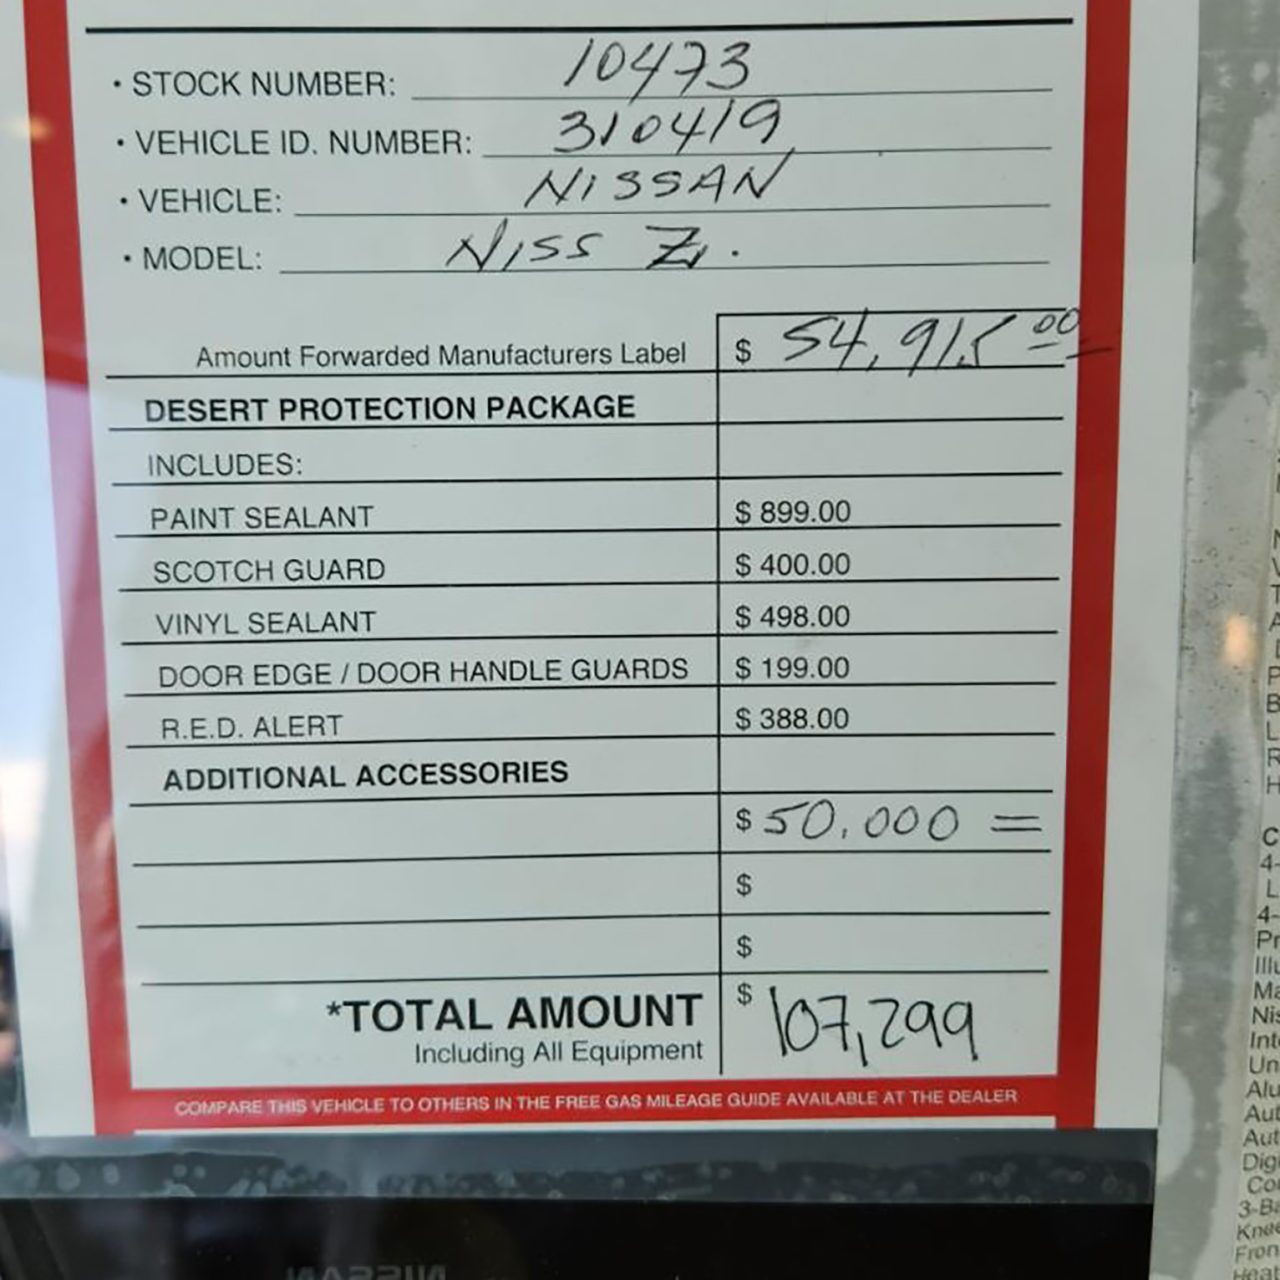 • STOCK NUMBER: 10473
• VEHICLE ID. NUMBER: 310419
• VEHICLE: NISSAN
• MODEL: NISS Z.
Amount Forwarded Manufacturers Label $ 54,915 00
DESERT PROTECTION PACKAGE
INCLUDES:
PAINT SEALANT $ 899.00
SCOTCH GUARD $ 400.00
VINYL SEALANT $ 498.00
DOOR EDGE / DOOR HANDLE GUARDS $ 199.00
R.E.D. ALERT $ 388.00
ADDITIONAL ACCESSORIES
$ 50,000 =
$
$
*TOTAL AMOUNT $ 107,299
Including All Equipment
COMPARE THIS VEHICLE TO OTHERS IN THE FREE GAS MILEAGE GUIDE AVAILABLE AT THE DEALER